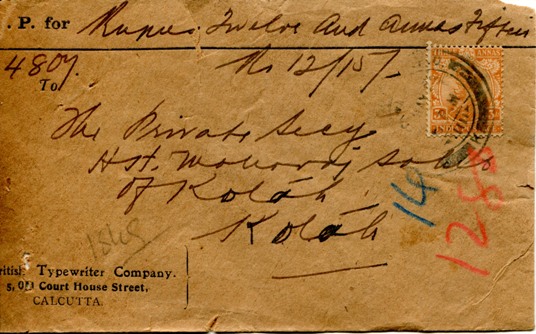 . P. for Rupees Twelve and Annas Fifteen
4807. Rs 12/15/-
To,
The Private Secy
H. H. Maharaj Saheb
of Kotah
Kotah
14
1283
1845
ritish Typewriter Company.
5, Old Court House Street,
CALCUTTA.